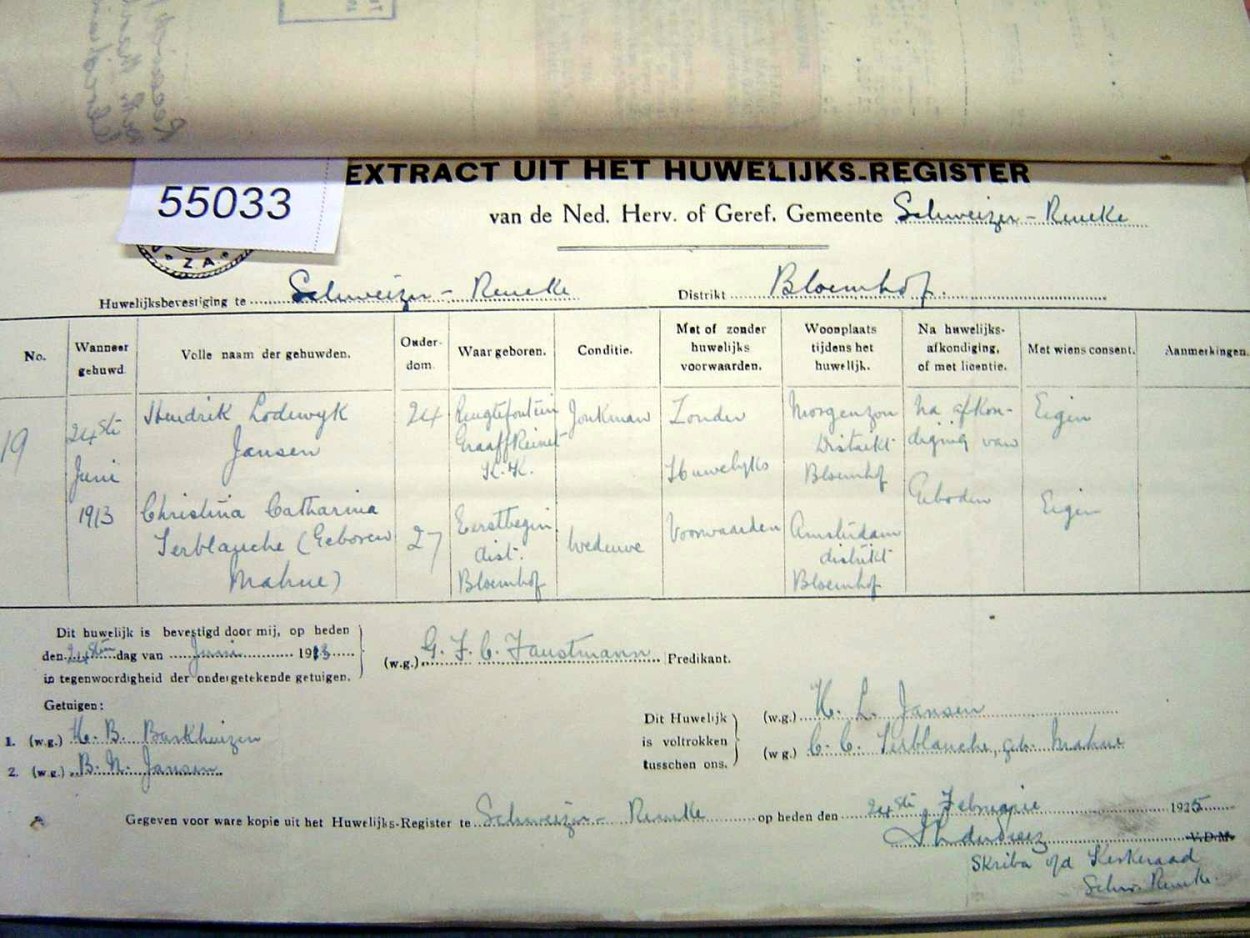 55033
Z.A.
EXTRACT UIT HET HUWELIJKS-REGISTER
van de Ned. Herv. of Geref. Gemeente Schweizer-Reneke
Huwelijksbevestiging te Schweizer-Reneke Distrikt Bloemhof
No. Wanneer gehuwd. Volle naam der gehuwden. Ouderdom. Waar geboren. Conditie. Met of zonder huwelijks voorwaarden. Woonplaats tijdens het huwelijk. Na huwelijks-afkondiging, of met licentie. Met wiens consent. Aanmerkingen.
19 24ste Juni 1913
Hendrik Lodewyk Jansen 24 Graaff Reinet K.K. Jonkman Zonder Huwelyks Voorwaarden Morgenzon Distrikt Bloemhof Na afkondiging van Geboden Eigen
Christina Catharina Terblanche (Geboren Mahne) 27 Eerstbegin dist. Bloemhof Weduwe Amsterdam distrikt Bloemhof Eigen
Dit huwelijk is bevestigd door mij, op heden
den 24sten dag van Juni 1913
in tegenwoordigheid der ondergetekende getuigen.
(w.g.) G. F. C. Faustmann Predikant.
Getuigen:
1. (w.g.) H. B. Barkhuizen
2. (w.g.) B. N. Jansen
Dit Huwelijk
is voltrokken
tusschen ons.
(w.g.) H. L. Jansen
(w g.) C. C. Terblanche, geb. Mahne
Gegeven voor ware kopie uit het Huwelijks-Register te Schweizer-Reneke op heden den 24ste Februarie 1925
V.D.M.
Skriba o/d Kerkeraad
Schw. Reneke.